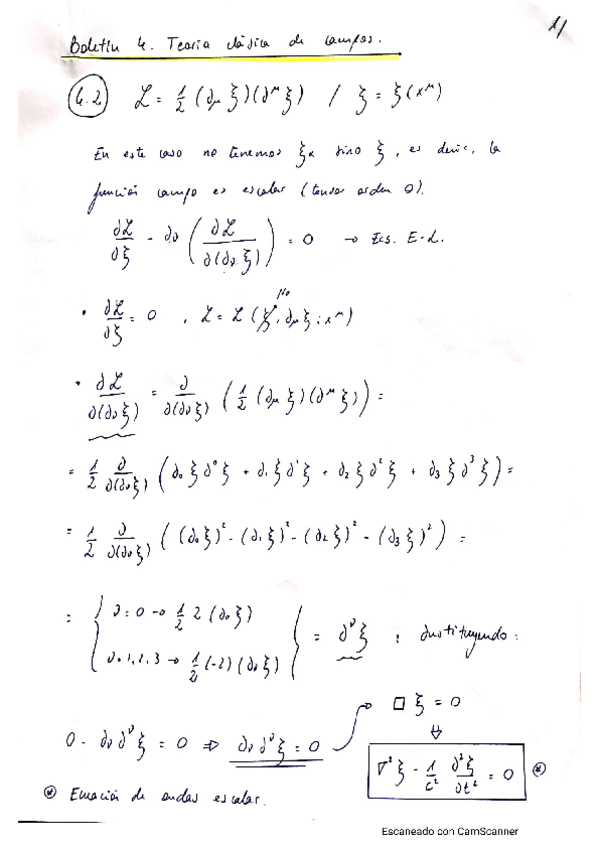 11
Boletín 4. Teoría clásica de campos.
4.2 ℒ = 1/2 (∂μ ξ)(∂^μ ξ) / ξ = ξ(x^μ)
En este caso no tenemos ξα sino ξ, es decir, la
función campo es escalar (tensor orden 0).
∂ℒ/∂ξ - ∂ν (∂ℒ/∂(∂ν ξ)) = 0 → Ecs. E-L.
No
• ∂ℒ/∂ξ = 0 , ℒ = ℒ(ξ, ∂μ ξ; x^μ)
• ∂ℒ/∂(∂ν ξ) = ∂/∂(∂ν ξ) (1/2 (∂μ ξ)(∂^μ ξ)) =
= 1/2 ∂/∂(∂ν ξ) (∂₀ ξ ∂⁰ ξ + ∂₁ ξ ∂¹ ξ + ∂₂ ξ ∂² ξ + ∂₃ ξ ∂³ ξ) =
= 1/2 ∂/∂(∂ν ξ) ((∂₀ ξ)² - (∂₁ ξ)² - (∂₂ ξ)² - (∂₃ ξ)²) =
= { ν = 0 → 1/2 2 (∂₀ ξ)
ν = 1,2,3 → 1/2 (-2) (∂ν ξ) } = ∂^ν ξ ; sustituyendo:
0 - ∂ν ∂^ν ξ = 0 ⇒ ∂ν ∂^ν ξ = 0 → □ ξ = 0
⇓
∇² ξ - 1/c² ∂² ξ/∂t² = 0 ⊛
⊛ Ecuación de ondas escalar.
Escaneado con CamScanner